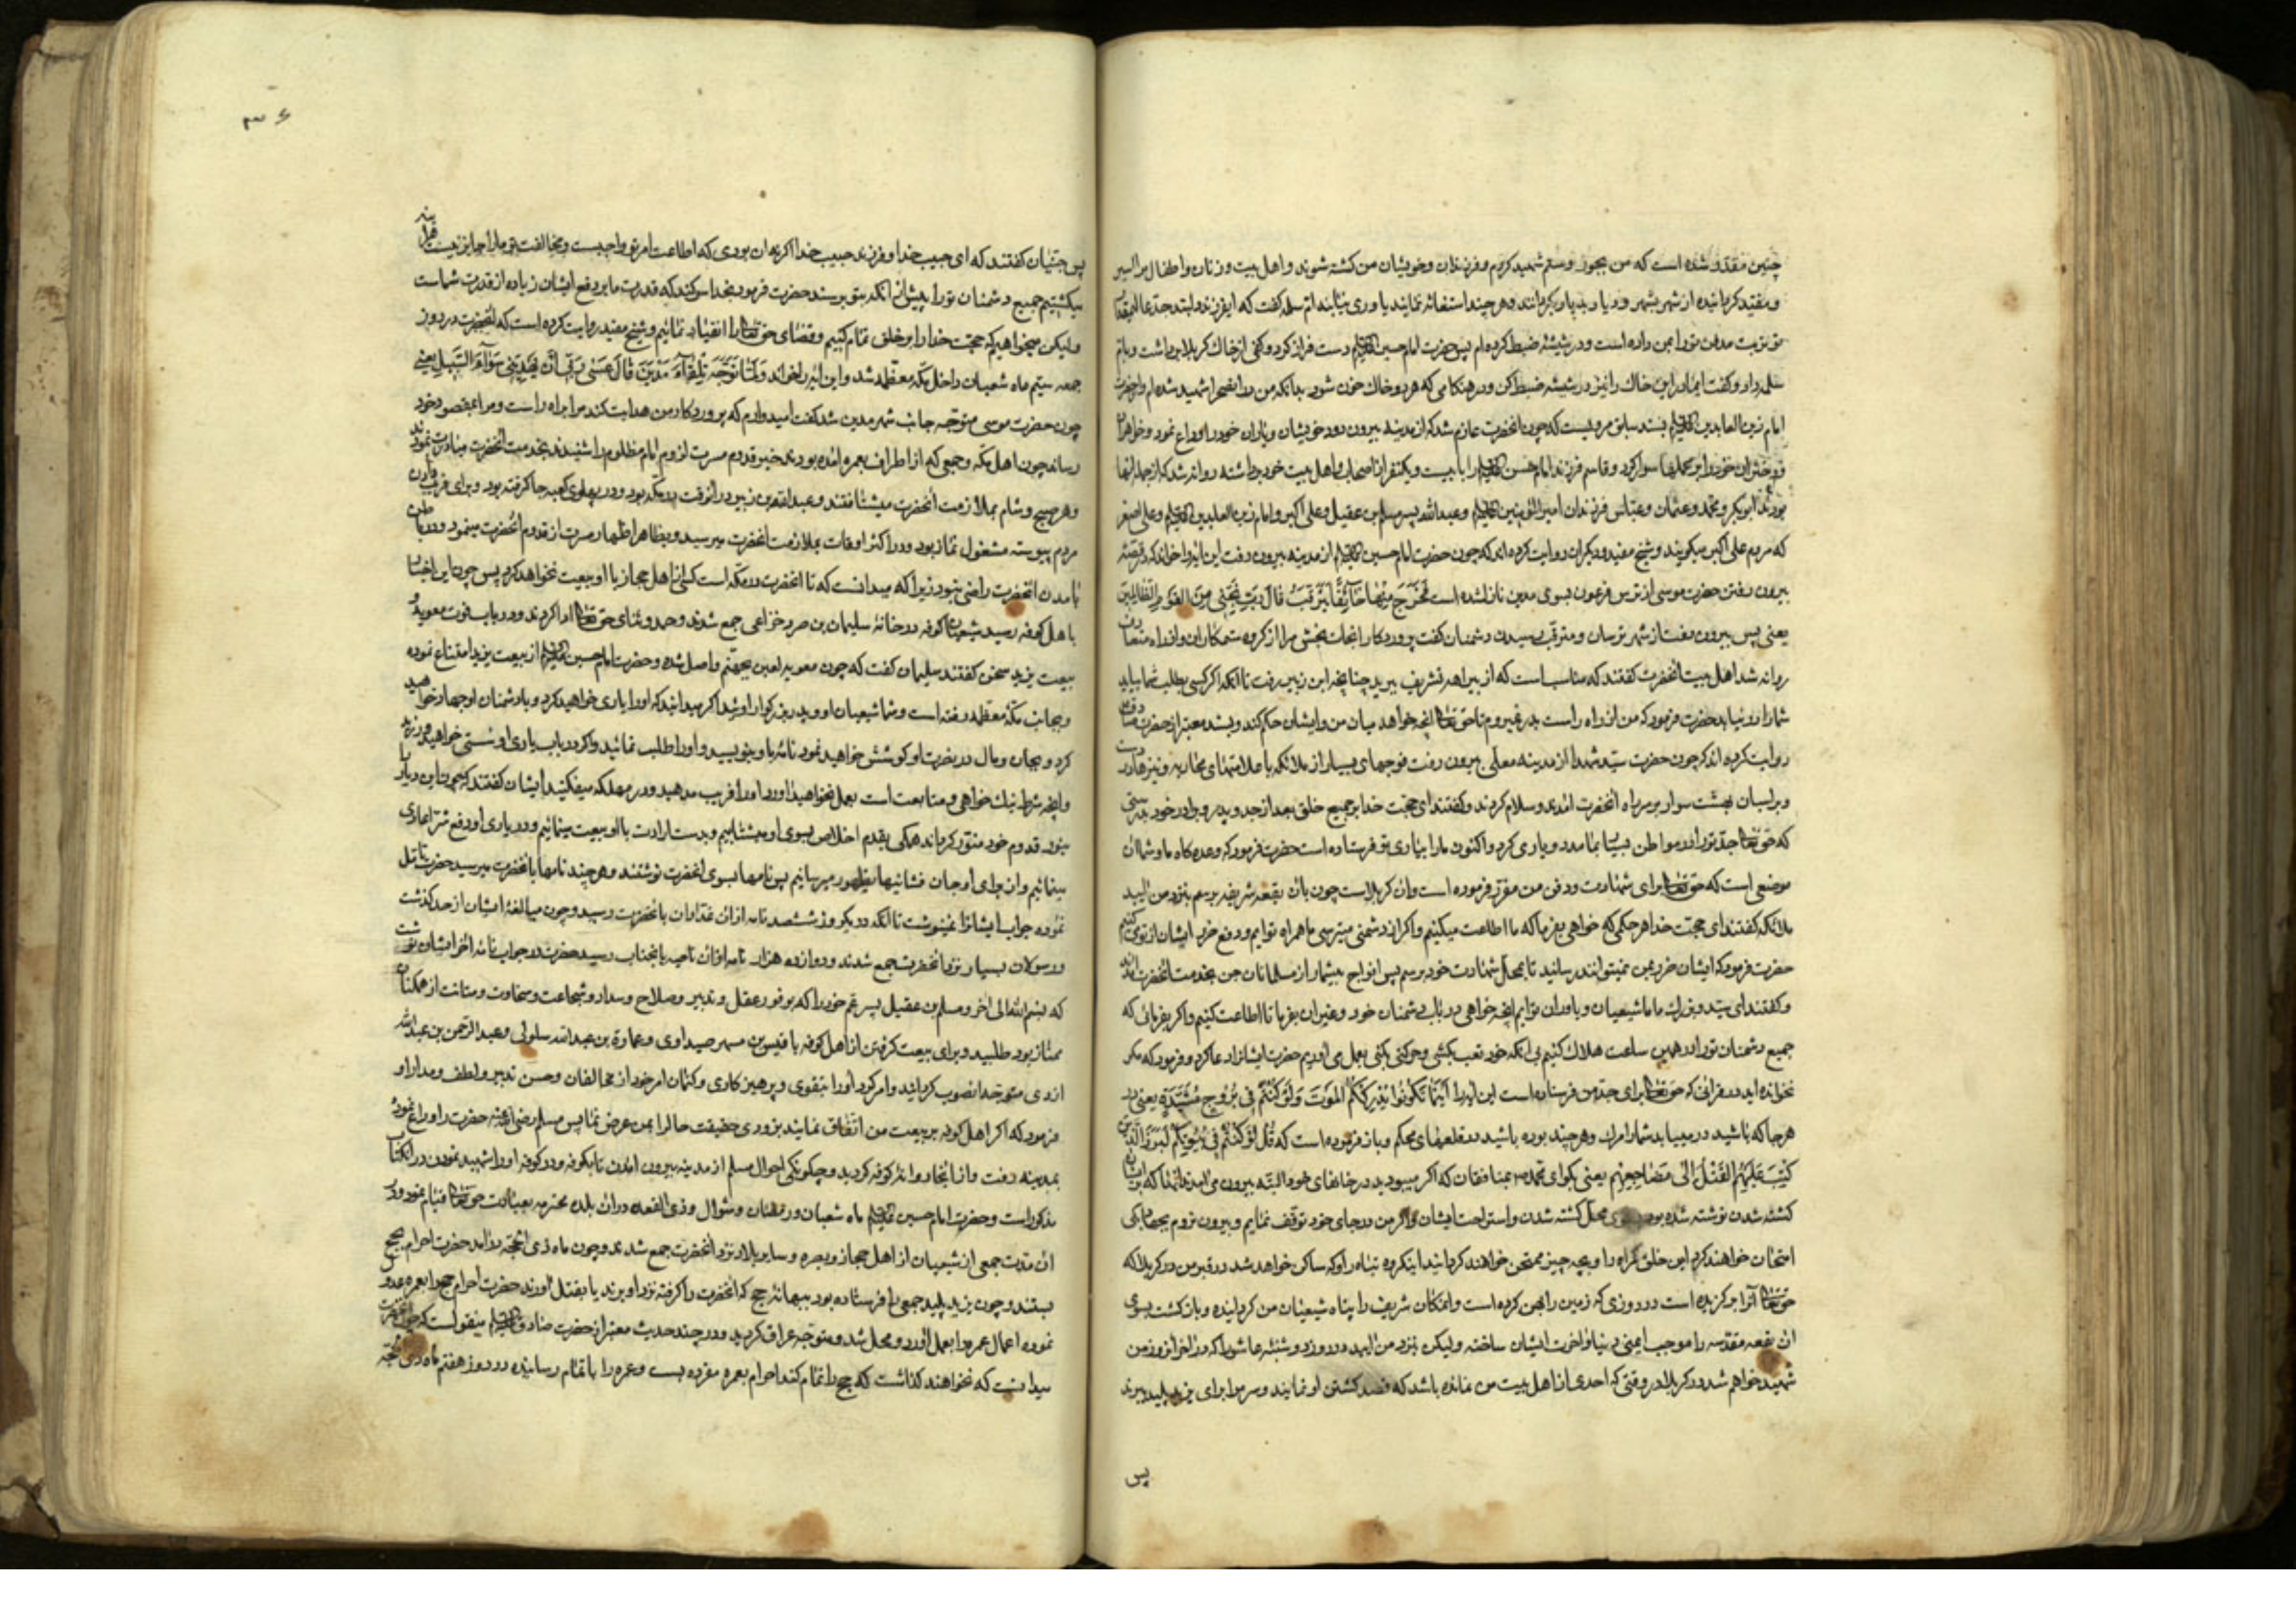 چنین مقدّر شده است که من بجور و ستم شهید کردم و فرزندان و خویشان من کشته شوند و اهل بیت و زنان و اطفال مرا اسیر
و مقید کردانیده از شهر بشهر و دیار بدیار بکردانند و هر چند استغاثه نمایند یاوری نیابند ام سلمه کفت که ای فرزند
تو تربت مدفن تو را بمن داده است و در شیشۀ ضبط کرده ام پس حضرت امام حسین دست فراز کرد و کفی از خاک کربلا برداشت و بام
سلمه داد و کفت این خاک را نیز در شیشه ضبط کن و در هنکامی که هر دو خاک خون شود بدانکه من در انصحرا شهید شده ام و از حضرت
امام زین العابدین بسند سابق مرویست که چون انحضرت عازم شد که از مدینه بیرون رود خویشان و یاران خود را وداع نمود و خواهران
و دختران خود را بر محملها سوار کرد و قاسم فرزند امام حسن را با بیست و یکنفر از اصحاب و اهل بیت خود برداشته روانه شد که از جمله انها
بودند ابوبکر و محمد و عثمان و عباس فرزندان امیرالمؤمنین و عبدالله پسر مسلم بن عقیل و علی اکبر و امام زین العابدین و علی اصغر
که مردم علی اکبر میکویند و شیخ مفید و دیکران روایت کرده اند که چون حضرت امام حسین از مدینه بیرون رفت این ایه را خواند که در قصّۀ
بیرون رفتن حضرت موسی از ترس فرعون بسوی مدین نازل شده است فَخَرَجَ مِنْهَا خَآئِفًا یَتَرَقَّبُ قَالَ رَبِّ نَجِّنِی مِنَ الْقَوْمِ الظَّالِمِینَ
یعنی پس بیرون رفت از شهر ترسان و مترقب رسیدن دشمنان کفت پروردکارا نجات بخش مرا از کروه ستمکاران و از راه متعارف
روانه شد اهل بیت انحضرت کفتند که مناسب است که از بیراهه تشریف ببرید چنانچه ابن زبیر رفت تا انکه اکر کسی بطلب شما بیاید
شما را در نیابد حضرت فرمود که من از راه راست بدر نمیروم تا حق تعالی انچه خواهد میان من و ایشان حکم کند و بسند معتبر از حضرت صادق
روایت کرده اند که چون حضرت سیّد شهدا از مدینه معلّی بیرون رفت فوجهای بسیار از ملائکه با علامتهای محاربه و نیزها در دست
و بر اسبان بهشت سوار بر سر راه انحضرت امدند و سلام کردند و کفتند ای حجّت خدا بر جمیع خلق بعد از جد و پدر و برادر خود بدرستی
که حق تعالی جدّ تو را در مواطن بسیار بما مدد و یاری کرد و اکنون ما را بیاری تو فرستاده است حضرت فرمود که وعده کاه ما و شما ان
موضعی است که حق تعالی برای شهادت و دفن من مقرّر فرموده است و ان کربلاست چون بان بقعۀ شریفه برسم بنزد من ایید
ملائکه کفتند ای حجّت خدا هر حکمی که خواهی بفرما که ما اطاعت میکنیم و اکر از دشمنی میترسی ما همراه توایم و دفع ضرر ایشان از تو میکنیم
حضرت فرمود که ایشان ضرر بمن نمیتوانند رسانید تا بمحلّ شهادت خود برسم پس افواج بیشمار از مسلمانان جن بخدمت انحضرت امدند
و کفتند ای سیّد و بزرک ما ما شیعیان و یاوران توایم انچه خواهی در باب دشمنان خود و غیر ان بفرما تا اطاعت کنیم و اکر بفرمائی که
جمیع دشمنان تو را در همین ساعت هلاک کنیم بی انکه خود تعب بکشی و حرکتی بکنی بعمل می اوریم حضرت ایشانرا دعا کرد و فرمود که مکر
نخوانده اید در قرانی که حق تعالی برای جد من فرستاده است این ایه را اَیْنَمَا تَکُونُوا یُدْرِکْکُمُ الْمَوْتُ وَلَوْ کُنْتُمْ فِی بُرُوجٍ مُشَیَّدَةٍ یعنی در
هر جا که باشید در مییابد شما را مرک و هر چند بوده باشید در قلعهای محکم و باز فرموده است که قُلْ لَوْ کُنْتُمْ فِی بُیُوتِکُمْ لَبَرَزَ الَّذِینَ
کُتِبَ عَلَیْهِمُ الْقَتْلُ اِلَی مَضَاجِعِهِمْ یعنی بکو ای محمد بمنافقان که اکر میبودید در خانهای خود البته بیرون می امدند انها که بر ایشان
کشته شدن نوشته شده بود محل کشته شدن و استراحت ایشان و اکر من در جای خود توقف نمایم و بیرون نروم بجهاد بکی
امتحان خواهند کرد این خلق کمراه را و بچه چیز ممتحن خواهند کردانید اینکروه تباه را و که ساکن خواهد شد در قبر من در کربلا که
حق تعالی آنرا برکزیده است در روزی که زمین را پهن کرده است و انمکان شریف را پناه شیعیان من کردانیده و بازکشت بسوی
ان بقعه مقدّسه را موجب ایمنی دنیا و اخرت ایشان ساخته ولیکن بنزد من ایید در روز دوشنبه عاشورا که در اخر انروز من
شهید خواهم شد در کربلا در وقتی که احدی از اهل بیت من نمانده باشد که قصد کشتن او نمایند و سر مرا برای یزید پلید ببرند
پس
۳۶
پس جنّیان کفتند که ای حبیب خدا و فرزند حبیب خدا اکر نه ان بودی که اطاعت امر تو واجبست و مخالفت تو ما را جایز نیست هراینه
میکشتیم جمیع دشمنان تو را پیش از انکه بتو برسند حضرت فرمود بخدا سوکند که قدرت ما بر دفع ایشان زیاده از قدرت شماست
ولیکن میخواهیم که حجّت خدا را بر خلق تمام کنیم و قضای حق تعالی را انقیاد نمائیم و شیخ مفید روایت کرده است که انحضرت در روز
جمعه سیّم ماه شعبان داخل مکّه معظّمه شد و این ایه را خواند وَلَمَّا تَوَجَّهَ تِلْقَآءَ مَدْیَنَ قَالَ عَسَی رَبِّی اَنْ یَهْدِیَنِی سَوَآءَ السَّبِیلِ یعنی
چون حضرت موسی متوجّه جانب شهر مدین شد کفت امیدوارم که پروردکار من هدایت کند مرا براه راست و مرا بمقصود خود
رساند چون اهل مکّه و جمعی که از اطراف بعمره امده بودند خبر قدوم مسرت لزوم امام مظلوم را شنیدند بخدمت انحضرت مبادرت نمودند
و هر صبح و شام بملازمت انحضرت میشتافتند و عبدالله بن زبیر در انوقت در مکّه بود و در پهلوی کعبه جا کرفته بود و برای فریب دادن
مردم پیوسته مشغول نماز بود و در اکثر اوقات بملازمت انحضرت میرسید و بظاهر اظهار مسرت از قدوم انحضرت مینمود و در باطن
بامدن انحضرت راضی نبود زیرا که میدانست که تا انحضرت در مکّه است کسی از اهل حجاز با او بیعت نخواهد کرد پس چون این اخبار
باهل کوفه رسید شیعیان کوفه در خانۀ سلیمان بن صرد خزاعی جمع شدند و حمد و ثنای حق تعالی ادا کردند و در باب فوت معویه و
بیعت یزید سخن کفتند سلیمان کفت که چون معویه لعین بجهنّم واصل شده و حضرت امام حسین از بیعت یزید امتناع نموده
و بجانب مکّۀ معظّمه رفته است و شما شیعیان او و پدر بزرکوار اوئید اکر میدانید که او را یاری خواهید کرد و با دشمنان او جهاد خواهید
کرد و بجان و مال در نصرت او کوشش خواهید نمود نامۀ باو بنویسید و او را طلب نمائید و اکر در باب یاری او سستی خواهید ورزید
و انچه شرط نیک خواهی و متابعت است بعمل نخواهید اورد او را فریب مدهید و در مهلکه میفکنید ایشان کفتند که چون این دیار را
بنور قدوم خود منوّر کرداند همکی بقدم اخلاص بسوی او میشتابیم و بدست ارادت با او بیعت مینمائیم و در یاری او و دفع شرّ اعادی
مینمائیم و از برای او جان فشانیها بظهور میرسانیم پس نامها بسوی انحضرت نوشتند و هر چند نامها بانحضرت میرسید حضرت تامّل
نموده جواب ایشانرا نمینوشت تا انکه در یکروز ششصد نامه از ان غدّاران بانحضرت رسید و چون مبالغۀ ایشان از حد کذشت
و رسولان بسیار نزد انحضرت جمع شدند و دوازده هزار نامه از ان ناحیه بانجناب رسید حضرت در جواب نامۀ اخر ایشان نوشت
که بسم الله الی اخر و مسلم بن عقیل پسر عم خود را که بوفور عقل و تدبیر و صلاح و سداد و شجاعت و سخاوت و متانت از همکنان
ممتاز بود طلبید و برای بیعت کرفتن از اهل کوفه با قیس بن مسهر صیداوی و عمارة بن عبدالله سلولی و عبدالرّحمن بن عبدالله
ازدی متوجه انصوب کردانید و امر کرد او را بتقوی و پرهیزکاری و کتمان امر خود از مخالفان و حسن تدبیر و لطف و مدارا و
فرمود که اکر اهل کوفه بر بیعت من اتّفاق نمایند بزودی حقیقت حال را بمن عرض نما پس مسلم رضی الله عنه حضرت را وداع نموده
بمدینه رفت و از انجا روانۀ کوفه کردید و چکونکی احوال مسلم از مدینه بیرون امدن تا بکوفه و در کوفه او را شهید نمودن در انکتاب
مذکور است و حضرت امام حسین ماه شعبان و رمضان و شوال و ذی القعده در ان بلده محترمه بعبادت حق تعالی قیام نمود و در
ان مدّت جمعی از شیعیان از اهل حجاز و بصره و سایر بلاد نزد انحضرت جمع شدند و چون ماه ذی الحجّه درامد حضرت احرام بحج
بستند و چون یزید پلید جمعی را فرستاده بود ببهانۀ حج که انحضرت را کرفته نزد او برند یا بقتل اورند حضرت احرام حج را بعمره عدول
نموده اعمال عمره را بعمل اورد و محل شد و متوجّه عراق کردید و در چند حدیث معتبر از حضرت صادق منقولست که چون انحضرت
میدانست که نخواهند کذاشت که حج را تمام کند احرام بعمره مفرده بست و عمره را باتمام رسانیده در روز هفتم ماه ذی حجّه